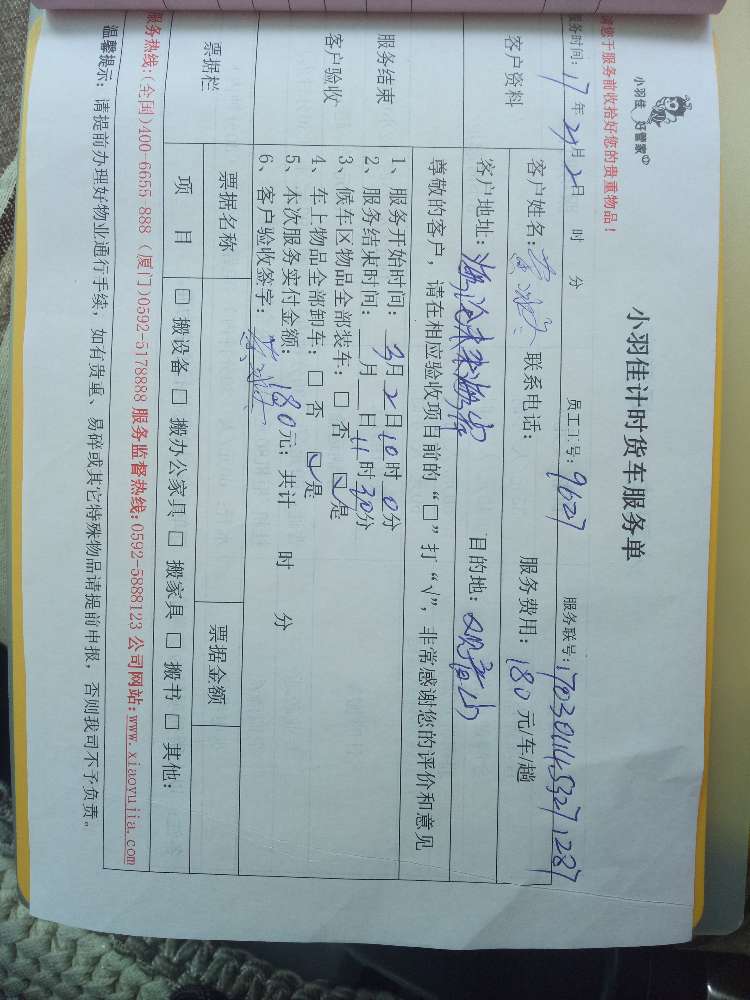 小羽佳 好管家
小羽佳计时货车服务单
请您于服务前收拾好您的贵重物品!
服务时间: 17 年 月 2 日 时 分 员工工号: 9627 服务联号: 17030111453271287
客户资料
客户姓名: 联系电话: 服务费用: 180 元/车/趟
客户地址: 目的地: 观音山
服务结束
客户验收
尊敬的客户,请在相应验收项目前的“□”打“√”,非常感谢您的评价和意见
1、服务开始时间: 3 月 2 日 10 时 0 分
2、服务结束时间: 月 日 11 时 30 分
3、候车区物品全部装车: □ 否 ☑ 是
4、车上物品全部卸车: □ 否 ☑ 是
5、本次服务实付金额: 180 元; 共计 时 分
6、客户验收签字:
票据栏
票据名称 票据金额
项 目 □ 搬设备 □ 搬办公家具 □ 搬家具 □ 搬书 □ 其他:
服务热线:(全国)400-6655-888 (厦门)0592-5178888 服务监督热线:0592-5888123 公司网站:www.xiaoyujia.com
温馨提示: 请提前办理好物业通行手续,如有贵重、易碎或其它特殊物品请提前申报,否则我司不予负责。